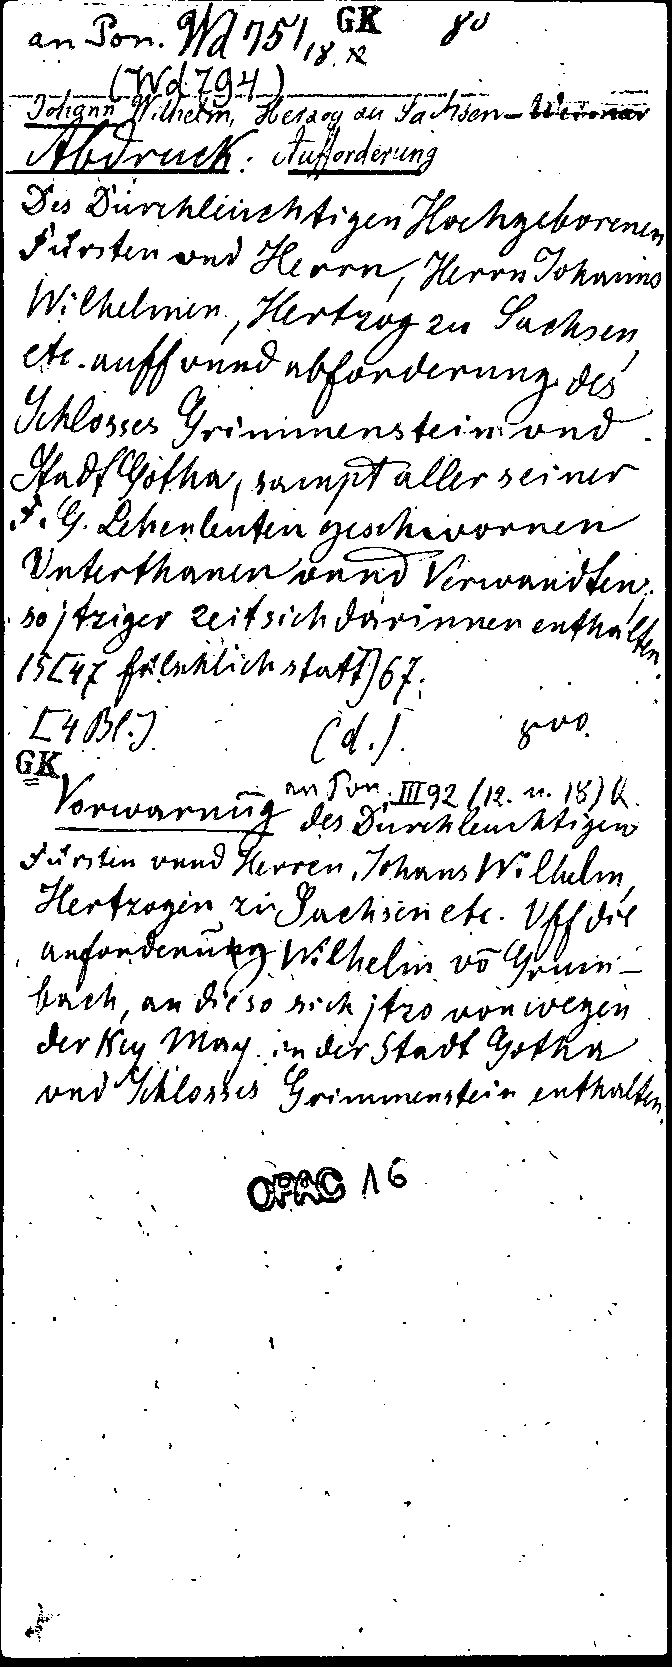 GK
an Pon. Wd 751, 18. 8o
(Wd 794)
Johann Wilhelm, Herzog zu Sachsen-Weimar
Abdruck: Aufforderung
Des Durchleuchtigen Hochgeborenen
Fürsten und Herrn, Herrn Johanns
Wilhelmen, Hertzog zu Sachsen,
etc. auff vnnd abforderung des
Schlosses Grimmenstein vnd
Stadt Gotha, sampt aller seiner
F. G. Lehenleuten geschwornen
Vnterthanen vnnd Verwandten,
so jtziger zeit sich darinnen enthalten.
15[47 fälschlich statt] 67.
[4 Bl.] (d.).
GK
an Pon. III 92 (12. u. 18) K.
Vorwarnūg des Durchleuchtigen
Fürsten vnnd Herren, Johans Wilhelm,
Hertzogen zu Sachsen etc. Vff die
anforderung Wilhelm vō Grum-
bach, an die so sich jtzo von wegen
der Key May. in der Stadt Gotha
vnd Schlosses Grimmenstein enthalten.
OPAC 16